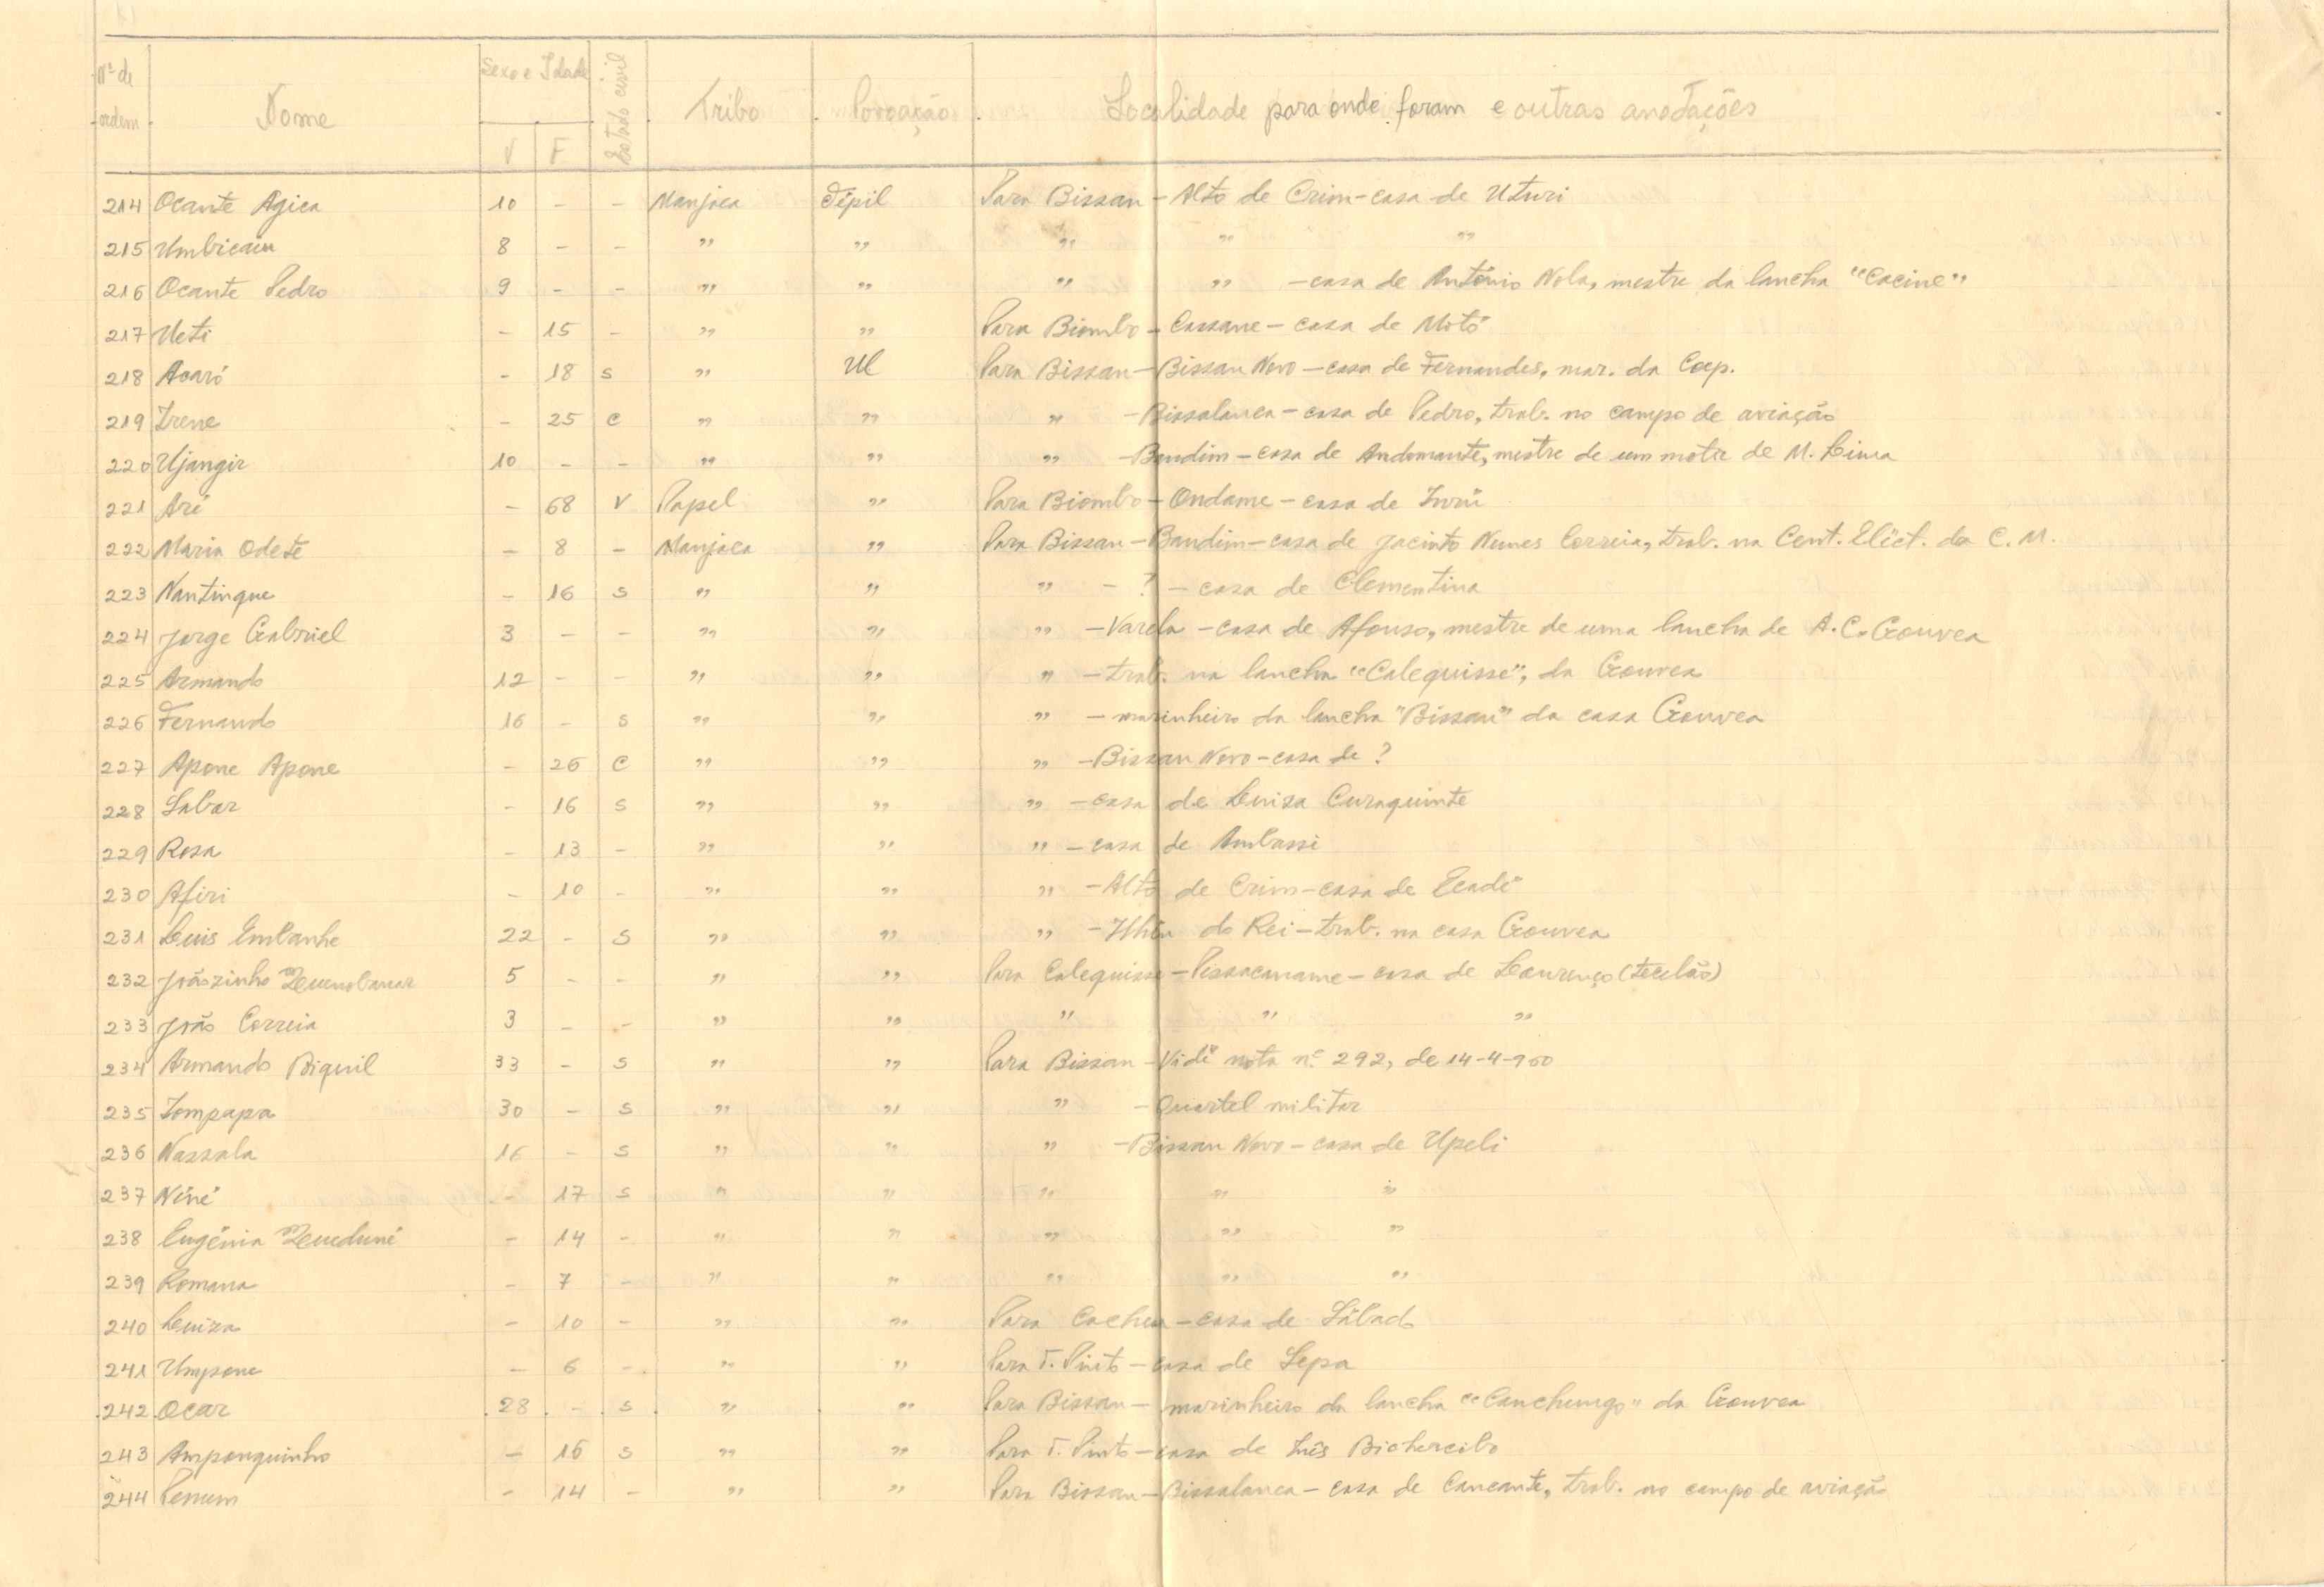 Nº de ordem | Nome | Sexo e Idade V F | Estado civil | Tribo | Povoação | Localidade para onde foram e outras anotações
214 Ocante Agica 10 - - Manjaca Tipil Para Bissau - Alto de Crim - casa de Uturi
215 Umbicain 8 - - " " " " "
216 Ocante Pedro 9 - - " " " " - casa de António Nola, mestre da lancha "Cacine"
217 Ueti - 15 - " " Para Biombo - Cassane - casa de Motó
218 Aoaró - 18 s " Ul Para Bissau - Bissau Novo - casa de Fernandes, mar. da Cap.
219 Irene - 25 c " " " - Bissalanca - casa de Pedro, trab. no campo de aviação
220 Ujangir 10 - - " " " - Bandim - casa de Andumante, mestre de um motor de M. Lima
221 Aré - 68 v Papel " Para Biombo - Ondame - casa de
222 Maria Odete - 8 - Manjaca " Para Bissau - Bandim - casa de Jacinto Nunes Correia, trab. na Cent. Eléct. da C. M.
223 Nantinque - 16 s " " " - ? - casa de Clementina
224 Jorge Gabriel 3 - - " " " - Varela - casa de Afonso, mestre de uma lancha de A. C. Gouvea
225 Armando 12 - - " " " - trab. na lancha "Calequisse", da Gouvea
226 Fernando 16 - s " " " - marinheiro da lancha "Bissau" da casa Gouvea
227 Apone Apone - 26 c " " " - Bissau Novo - casa de ?
228 Sabar - 16 s " " " - casa de Luiza Curaquinte
229 Rosa - 13 - " " " - casa de Ambassi
230 Afiri - 10 - " " " - Alto de Crim - casa de Ecadé
231 Luis Embanhe 22 - s " " " - Ilhéu do Rei - trab. na casa Gouvea
232 Joãozinho 5 - - " " Para Calequisse - Pissacaname - casa de Lourenço (tecelão)
233 João Correia 3 - - " " " " "
234 Armando Biquil 33 - s " " Para Bissau - Vidé nota nº 292, de 14-4-950
235 Iompapa 30 - s " " " - Quartel militar
236 Nassala 16 - s " " " - Bissau Novo - casa de Upeli
237 Niné - 17 s " " " " "
238 Eugénia - 14 - " " " " "
239 Romana - 7 - " " " " "
240 Luiza - 10 - " " Para Cacheu - casa de Sábado
241 Umpone - 6 - " " Para T. Pinto - casa de Sepa
242 Ocar 28 - s " " Para Bissau - marinheiro da lancha "Canchungo" da Gouvea
243 Ampanquinho - 16 s " " Para T. Pinto - casa de Inês
244 Penum - 14 - " " Para Bissau - Bissalanca - casa de Cancante, trab. no campo de aviação